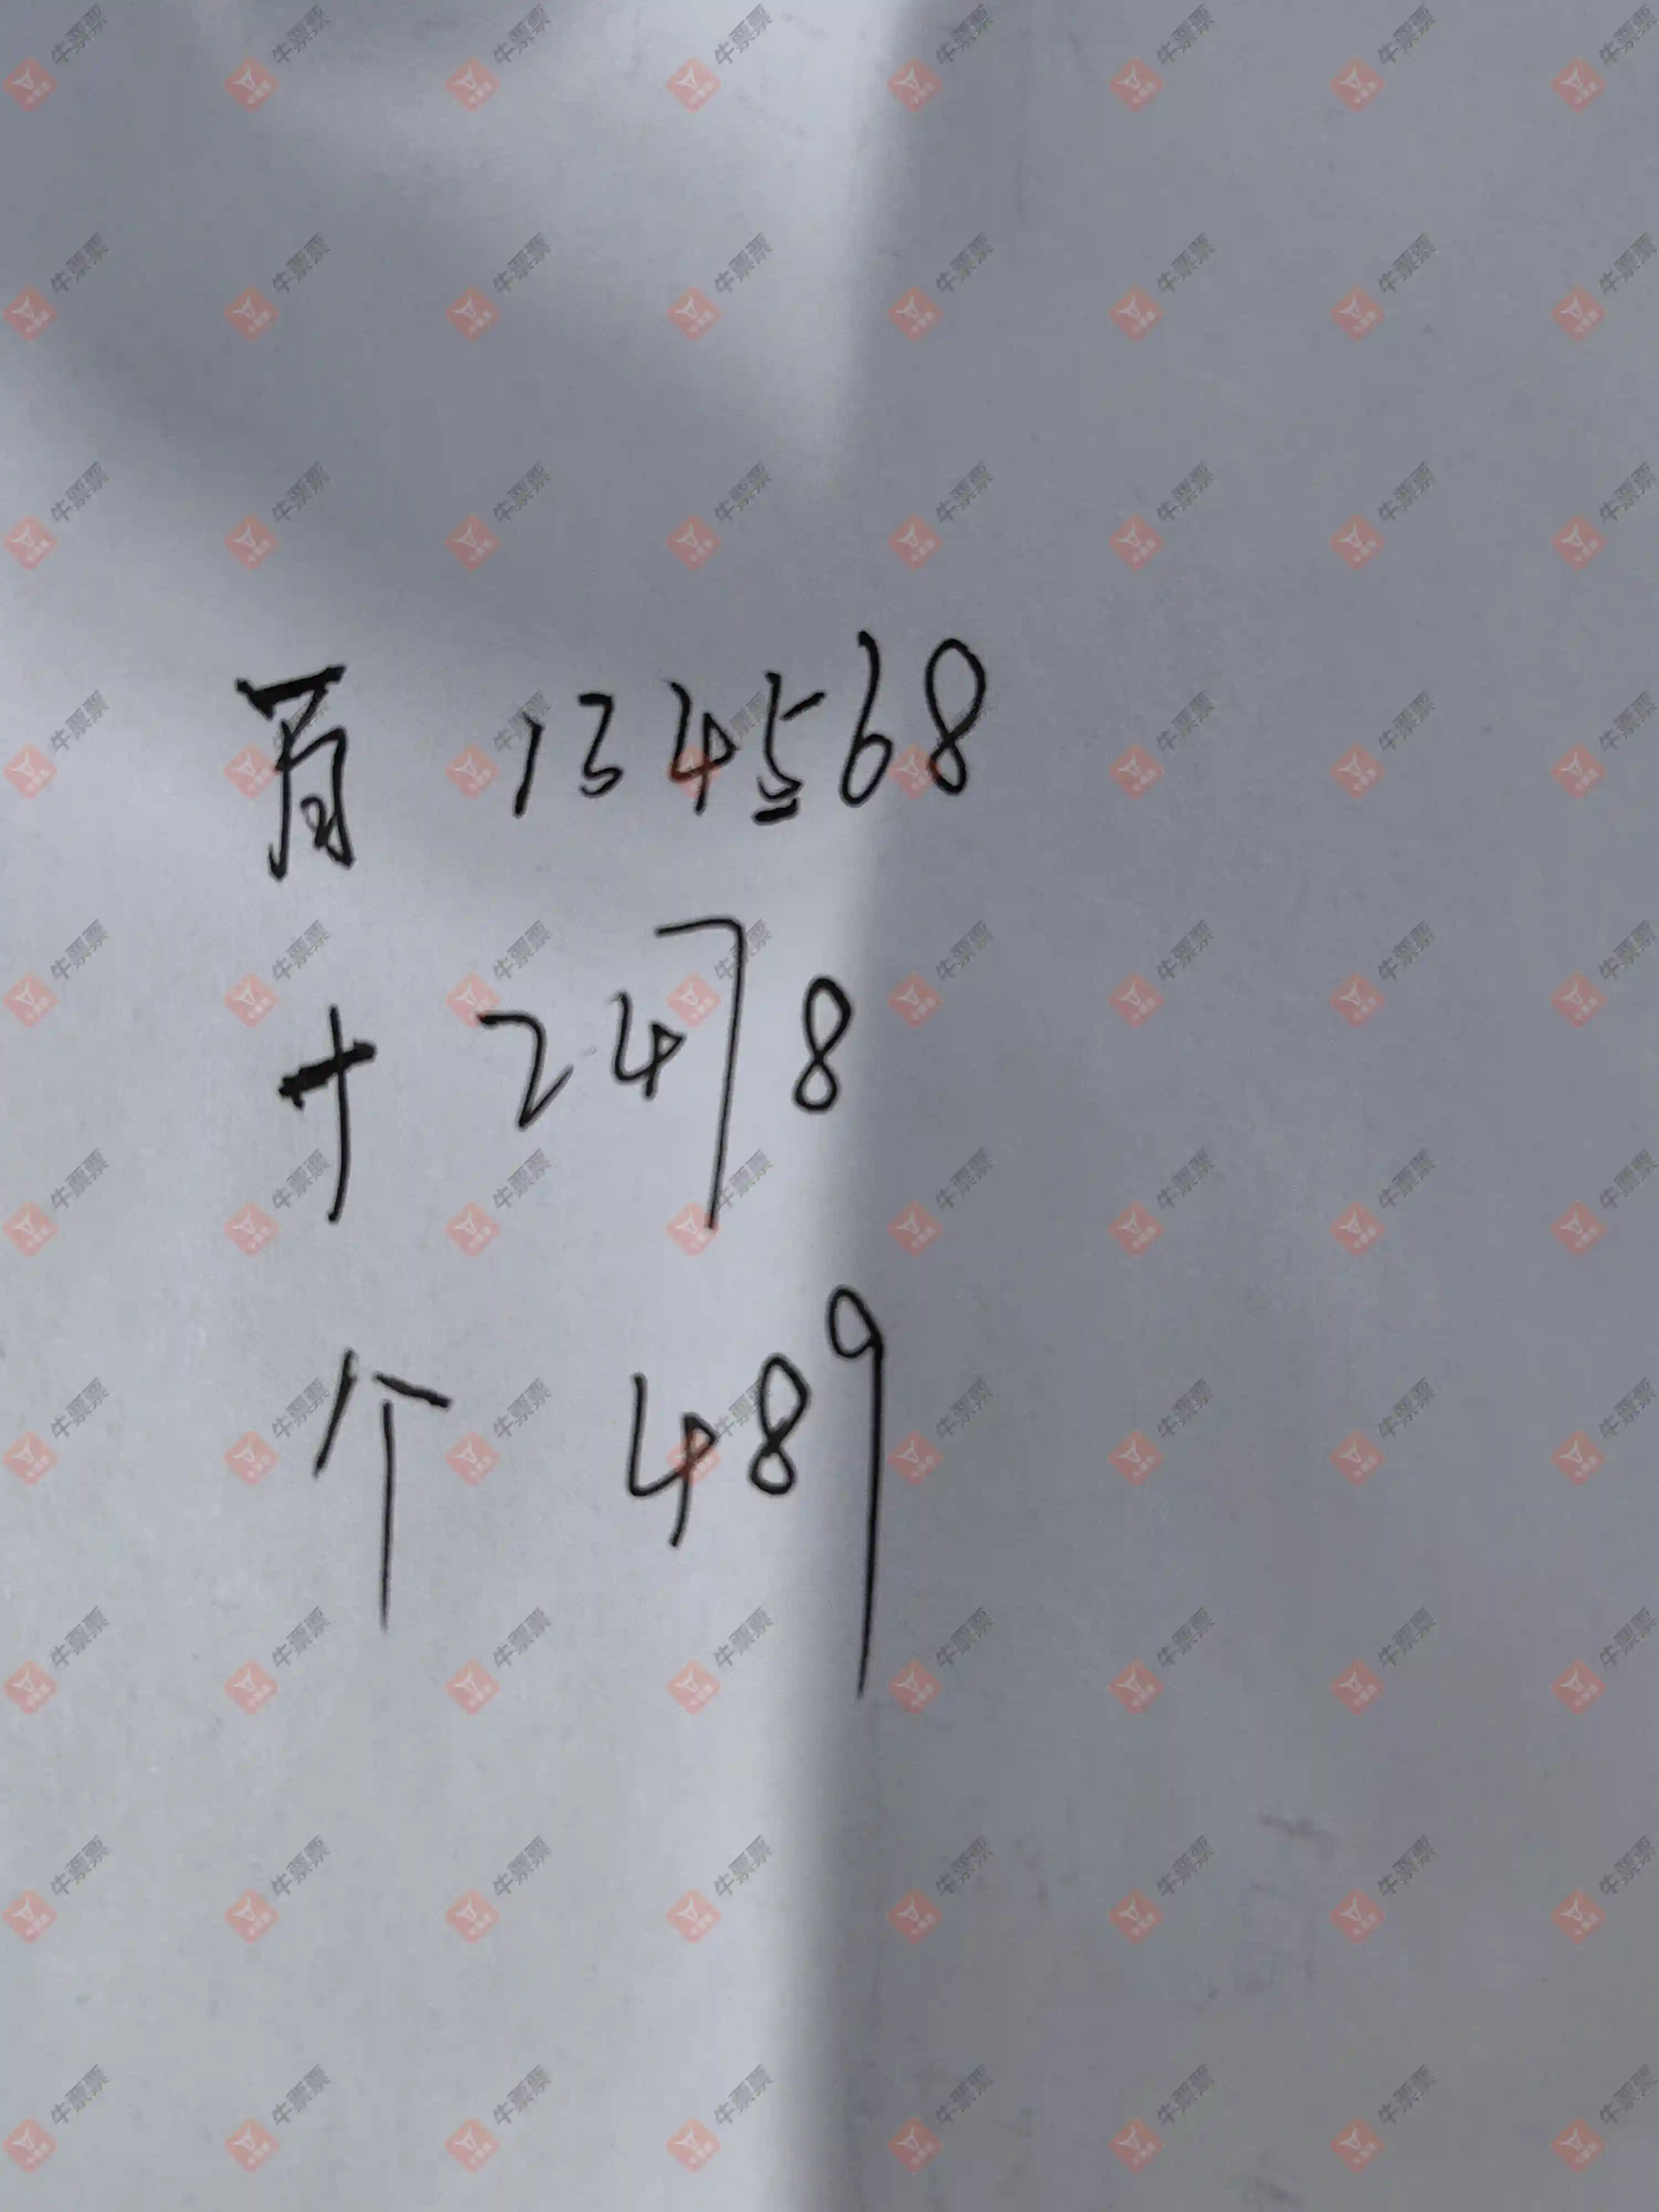 百 134568
十 2478
个 489
牛票票